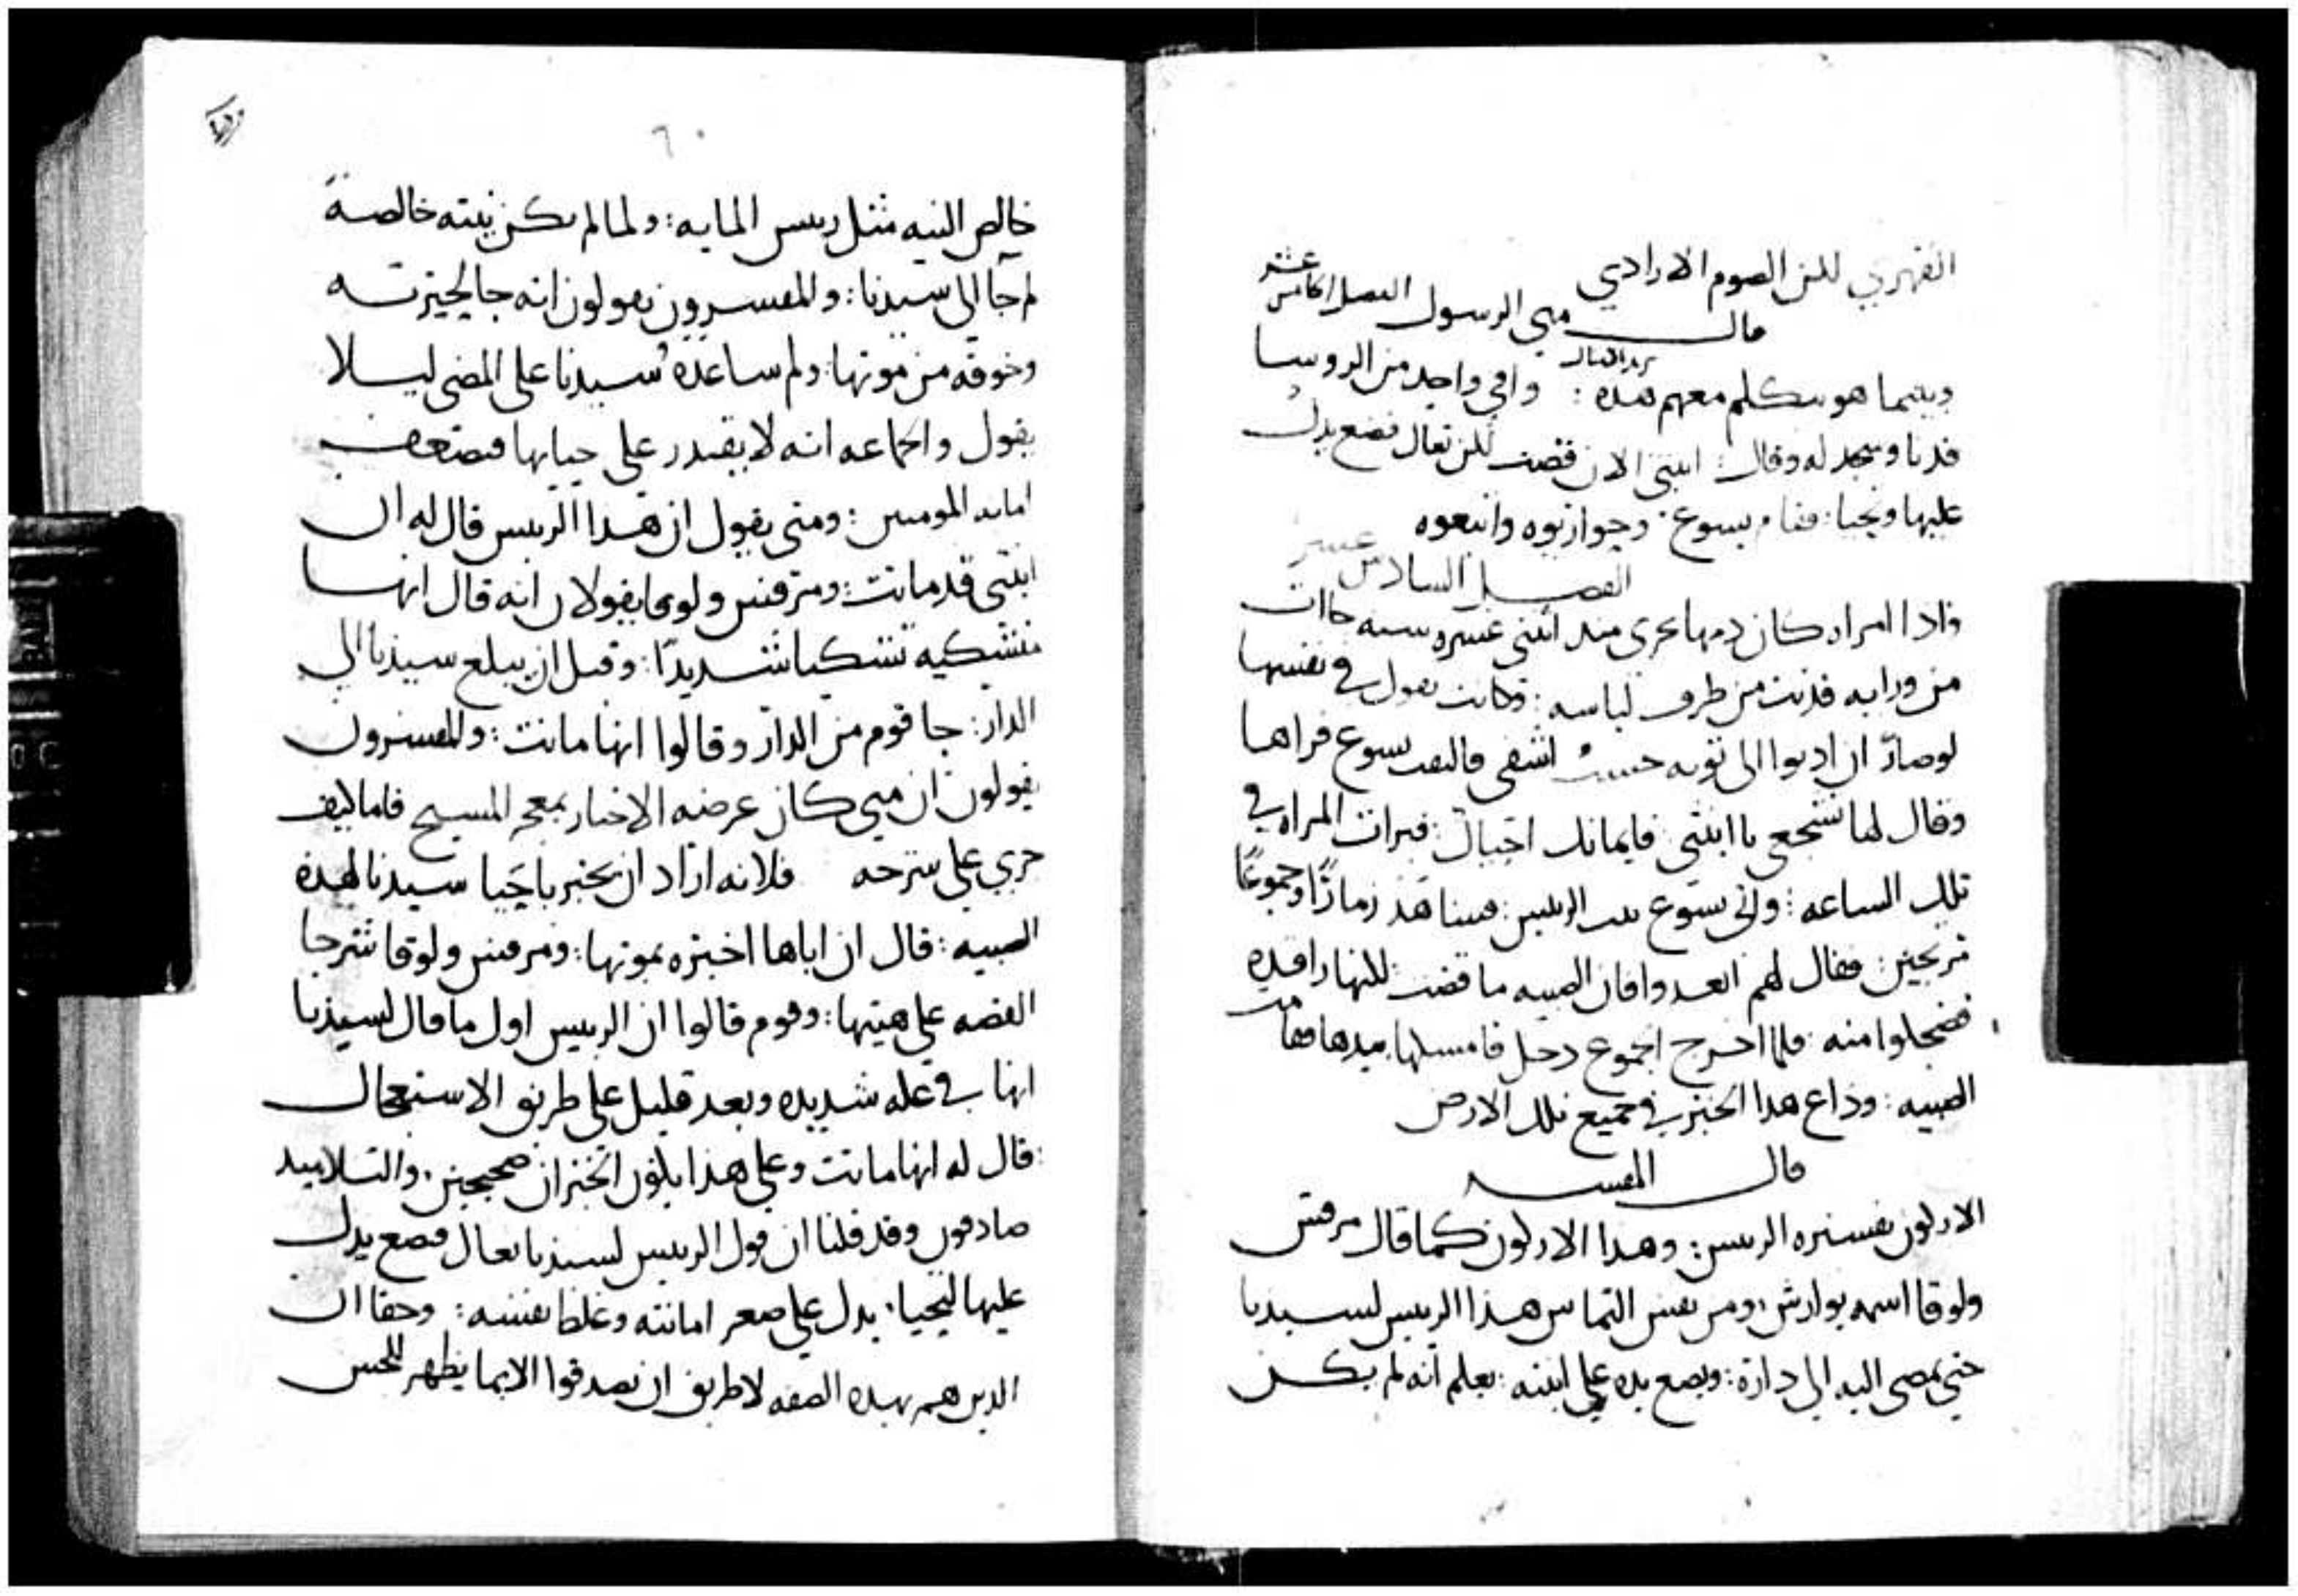 القهري لكن الصوم الارادي
الفصل الخامس عشر
قال متي الرسول
وبينما هو يتكلم معهم هذه : وافي واحد من الروسا
فدنا وسجد له وقال : ابنتي الان قضت لكن تعال فضع يدك
عليها وتحيا : فقام يسوع وحواريوه واتبعوه
الفصل السادس عشر
واذا امراه كان دمها يجري منذ اثنتي عشره سنه جاات
من ورايه فدنت من طرف لباسه : وكانت تقول في نفسها
لو صار ان ادنوا الى ثوبه حسب اشفى فالتفت يسوع فراها
وقال لها تشجعي يا ابنتي فايمانك احياك : فبرات المراه في
تلك الساعه : واتى يسوع بيت الرييس : فشاهد زمارًا وجموعًا
مرتجين : فقال لهم ابعدوا فان الصبيه ما قضت لكنها راقده
فضحكوا منه فلما اخرج الجموع دخل فامسكها بيدها فقامت
الصبيه : وذاع هذا الخبر في جميع تلك الارض
قال المفسر
الاركون تفسيره الرييس : وهذا الاركون كما قال مرقس
ولوقا اسمه يوارش ومن نفس التماس هذا الرييس لسيدنا
حتي يمضي اليه الي داره : ويضع يده علي ابنته : يعلم انه لم يكن
٦٠
خالص النيه مثل رييس المايه : ولما لم يكن نيته خالصه
لم جا الى سيدنا : والمفسرون يقولون انه جا لحيرته
وخوفه من موتها : ولم ساعده سيدنا على المضي ليلا
يقول والجماعه انه لا يقدر على حياتها فيضعف
امانه المومنين : ومتى يقول ان هذا الرييس قال له ان
ابنتي قد ماتت : ومرقس ولوقا يقولان انه قال انها
متشكيه تشكيا شديدًا : وقبل ان يبلغ سيدنا الي
الدار : جا قوم من الدار وقالوا انها ماتت : والمفسرون
يقولون ان متي كان غرضه الاخبار بمعجز المسيح فاما كيف
جري علي شرحه فلانه اراد ان يخبر باحيا سيدنا لهذه
الصبيه : قال ان اباها اخبره بموتها : ومرقس ولوقا شرحا
القصه علي هيتها : وقوم قالوا ان الرييس اول ما قال لسيدنا
انها في عله شديده وبعد قليل علي طريق الاستعجال
قال له انها ماتت وعلي هذا يكون الخبران صحيحين . والتلاميد
صادقون وقد قلنا ان قول الرييس لسيدنا تعال فضع يدك
عليها لتحيا . يدل علي صغر امانته وغلظ نفسه : وحقا ان
الدين هم بهده الصفه لا طريق ان يصدقوا الا بما يظهر للحس